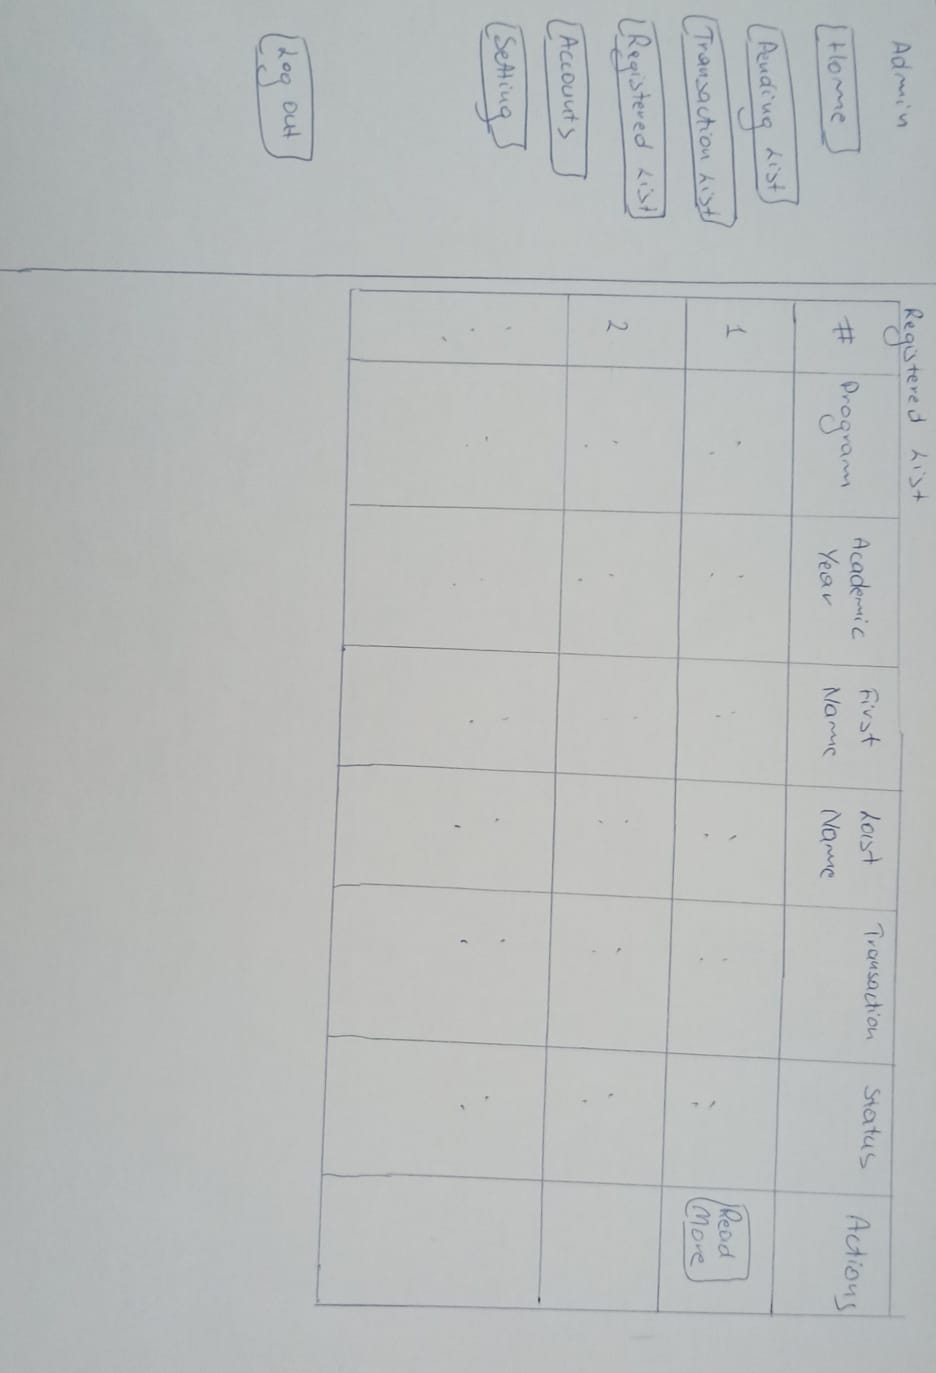 Admin
Home
Pending List
Transaction List
Registered List
Accounts
Setting
Log out
Registered List
# Program Academic First Last Transaction Status Actions
Year Name Name
1 Read
More
2